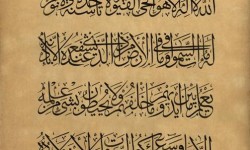 الله لا اله الا هو الحي القيوم لا تاخذه سنة ولا نوم
له ما في السموات وما في الارض من ذا الذي يشفع عنده الا باذنه
يعلم ما بين ايديهم وما خلفهم ولا يحيطون بشيء من علمه
الا بما شاء وسع كرسيه السموات والارض ولا